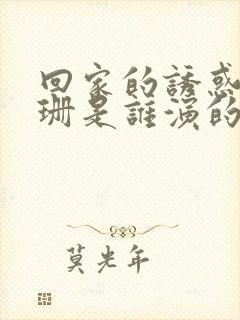 回家的誘惑
珊是誰演的
莫光年